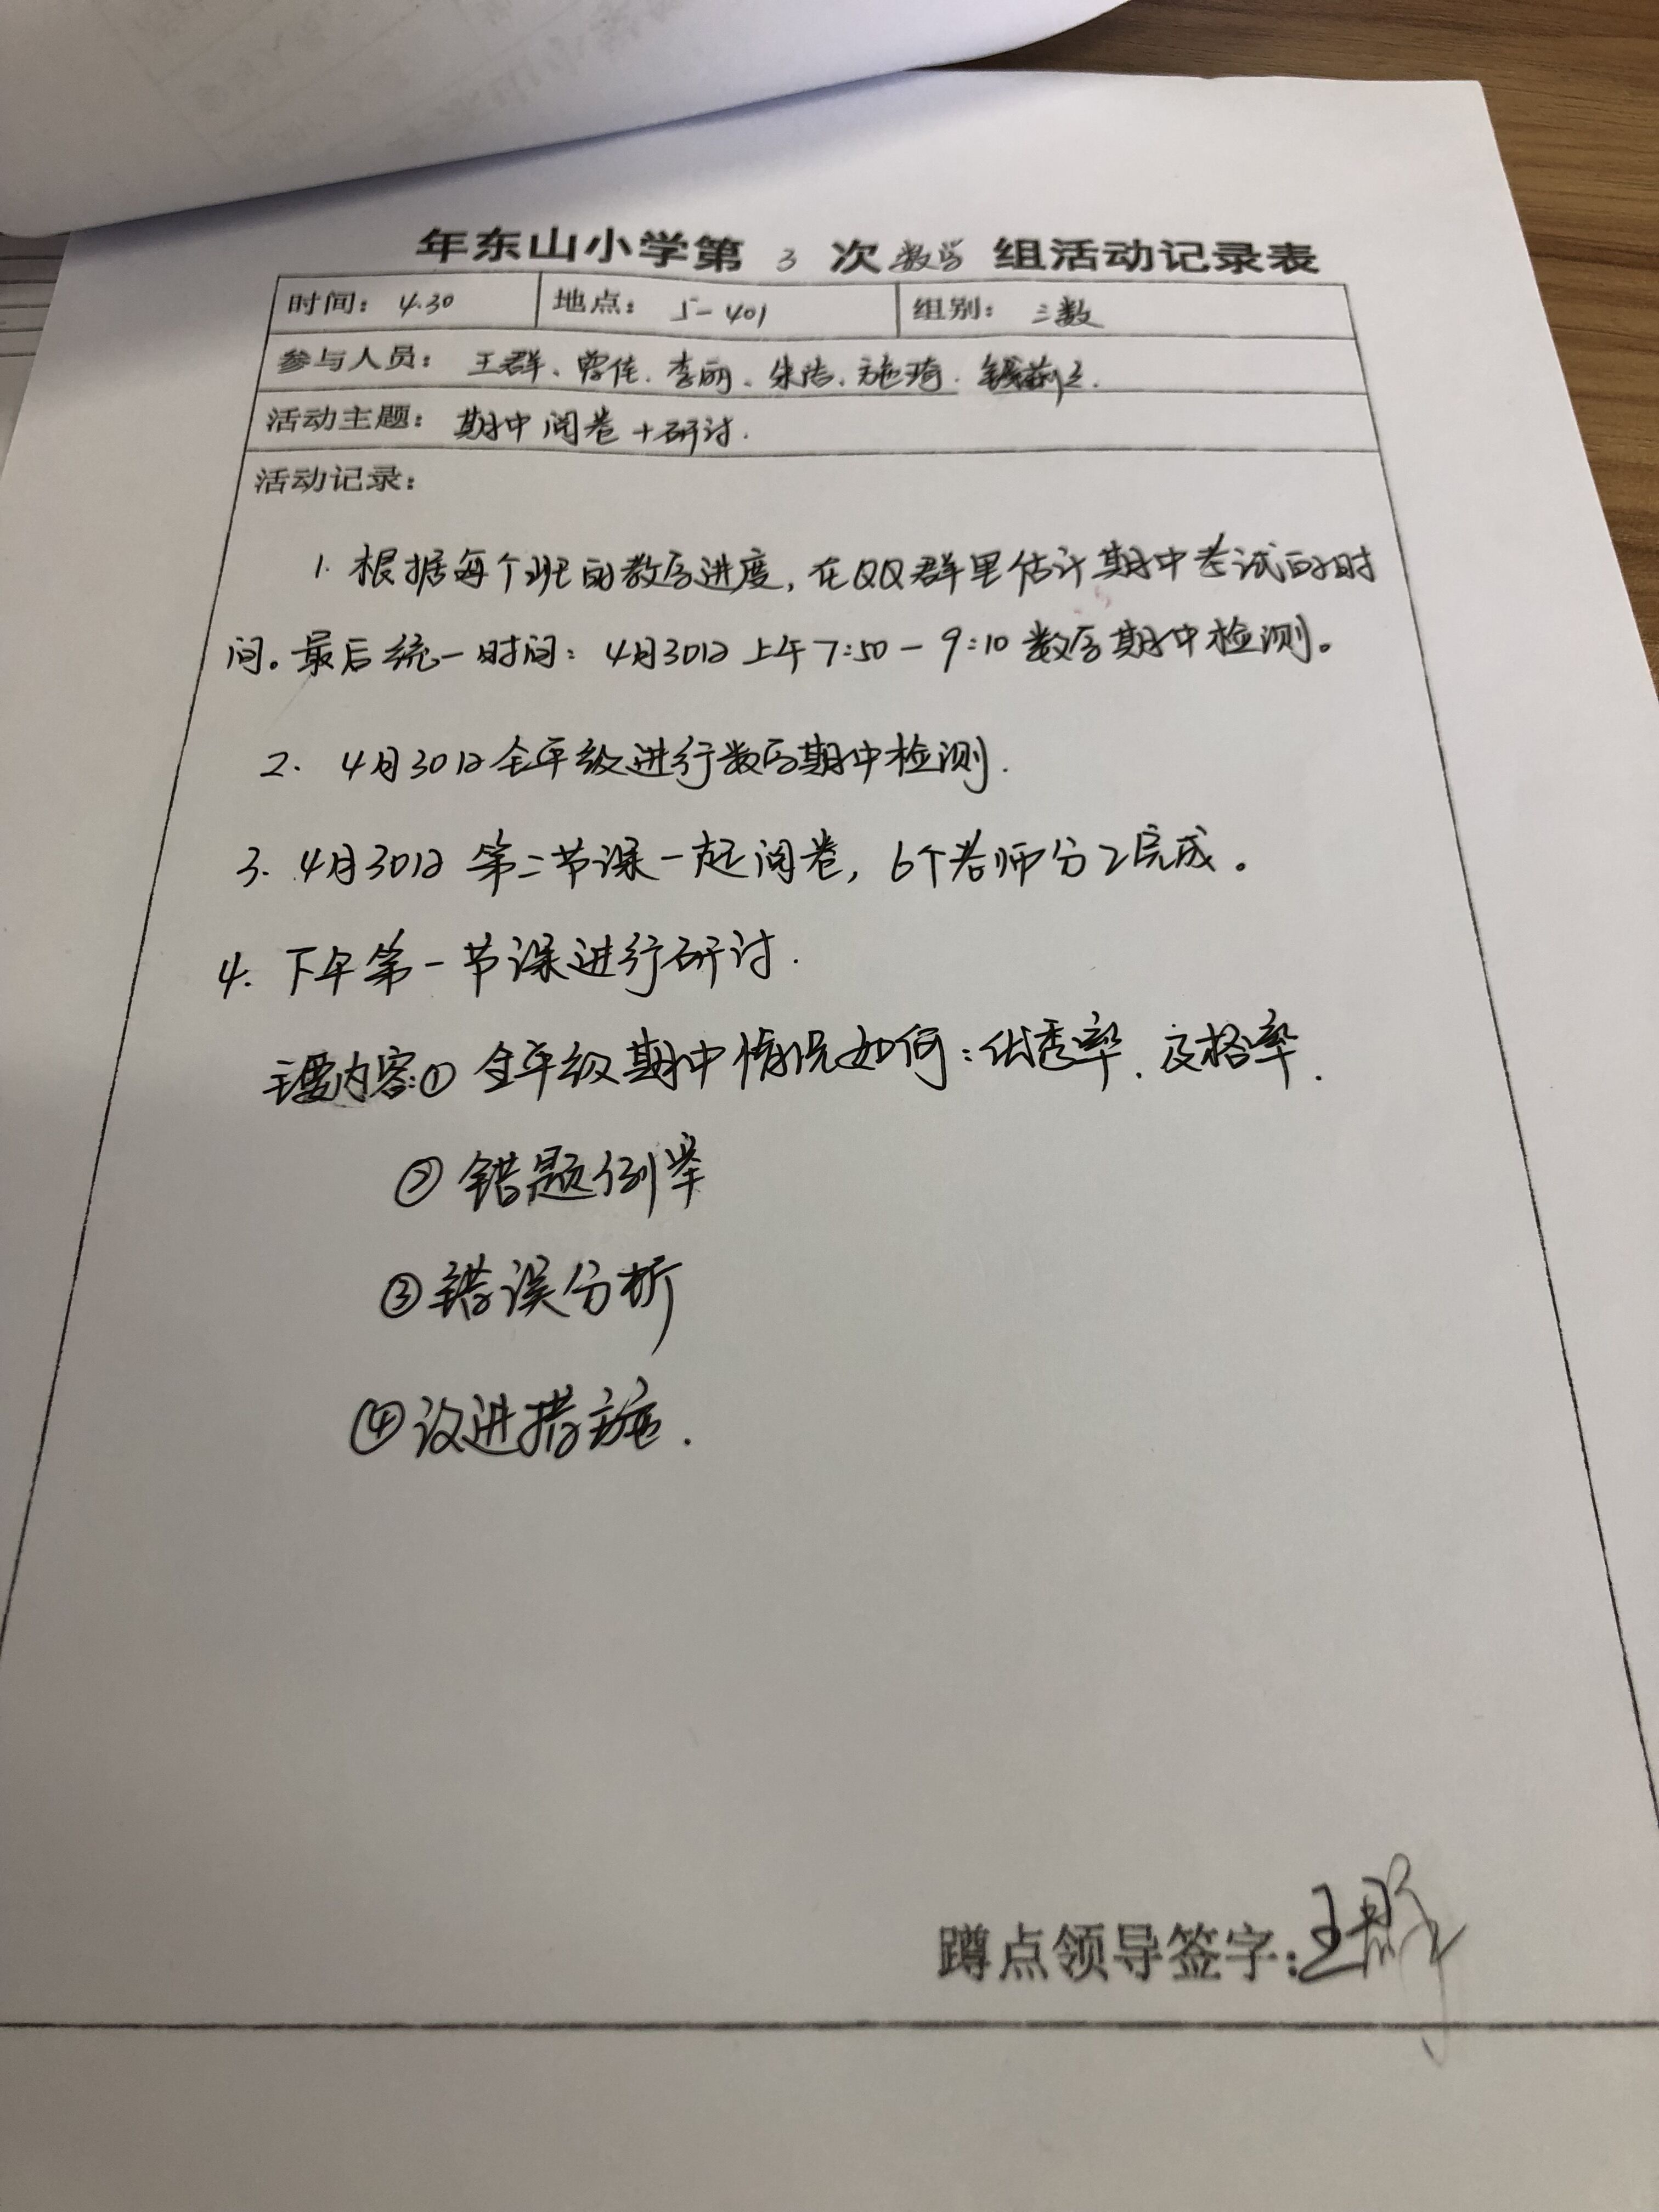 年东山小学第 3 次 数学 组活动记录表
时间: 4.30 地点: 5-401 组别: 三数
参与人员: 王群、曾佳、李丽、朱洁、施琦、
活动主题: 期中阅卷+研讨.
活动记录:
1. 根据每个班的教学进度,在QQ群里估计期中考试的时
间。最后统一时间: 4月30日上午7:50-9:10数学期中检测。
2. 4月30日全年级进行数学期中检测.
3. 4月30日 第二节课一起阅卷, 6个老师分工完成。
4. 下午第一节课进行研讨.
主要内容:① 全年级期中情况如何:优秀率、及格率.
② 错题例举
③ 错误分析
④ 改进措施.
蹲点领导签字:王群